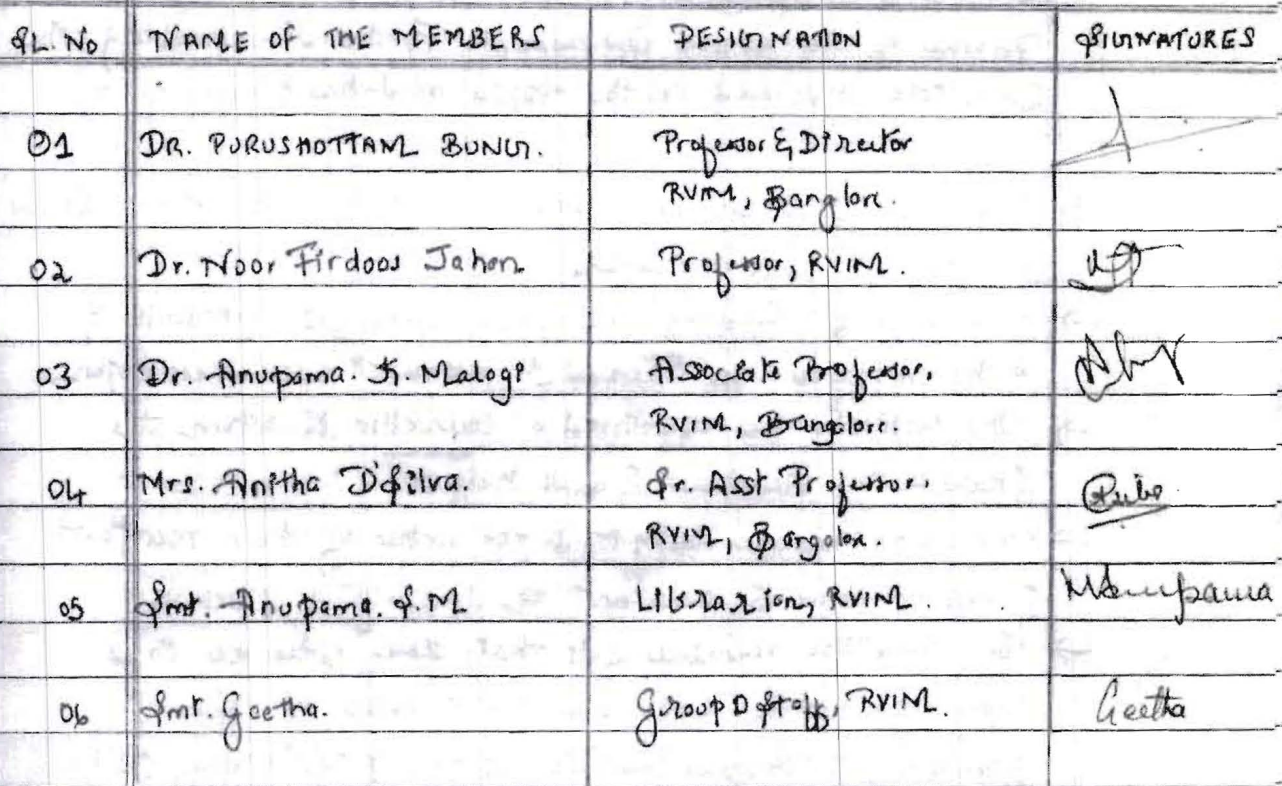 SL. No NAME OF THE MEMBERS DESIGNATION SIGNATURES
01 DR. PURUSHOTTAM BUNG. Professor & Director
RVIM, Banglore.
02 Dr. Noor Firdoos Jahan Professor, RVIM.
03 Dr. Anupama. K. Malagi Associate Professor,
RVIM, Bangalore.
04 Mrs. Anitha D'silva. Sr. Asst Professor.
RVIM, Bangalore.
05 Smt. Anupama. S. M Librarian, RVIM. Anupama
06 Smt. Geetha. Group D Staff, RVIM. Geetha